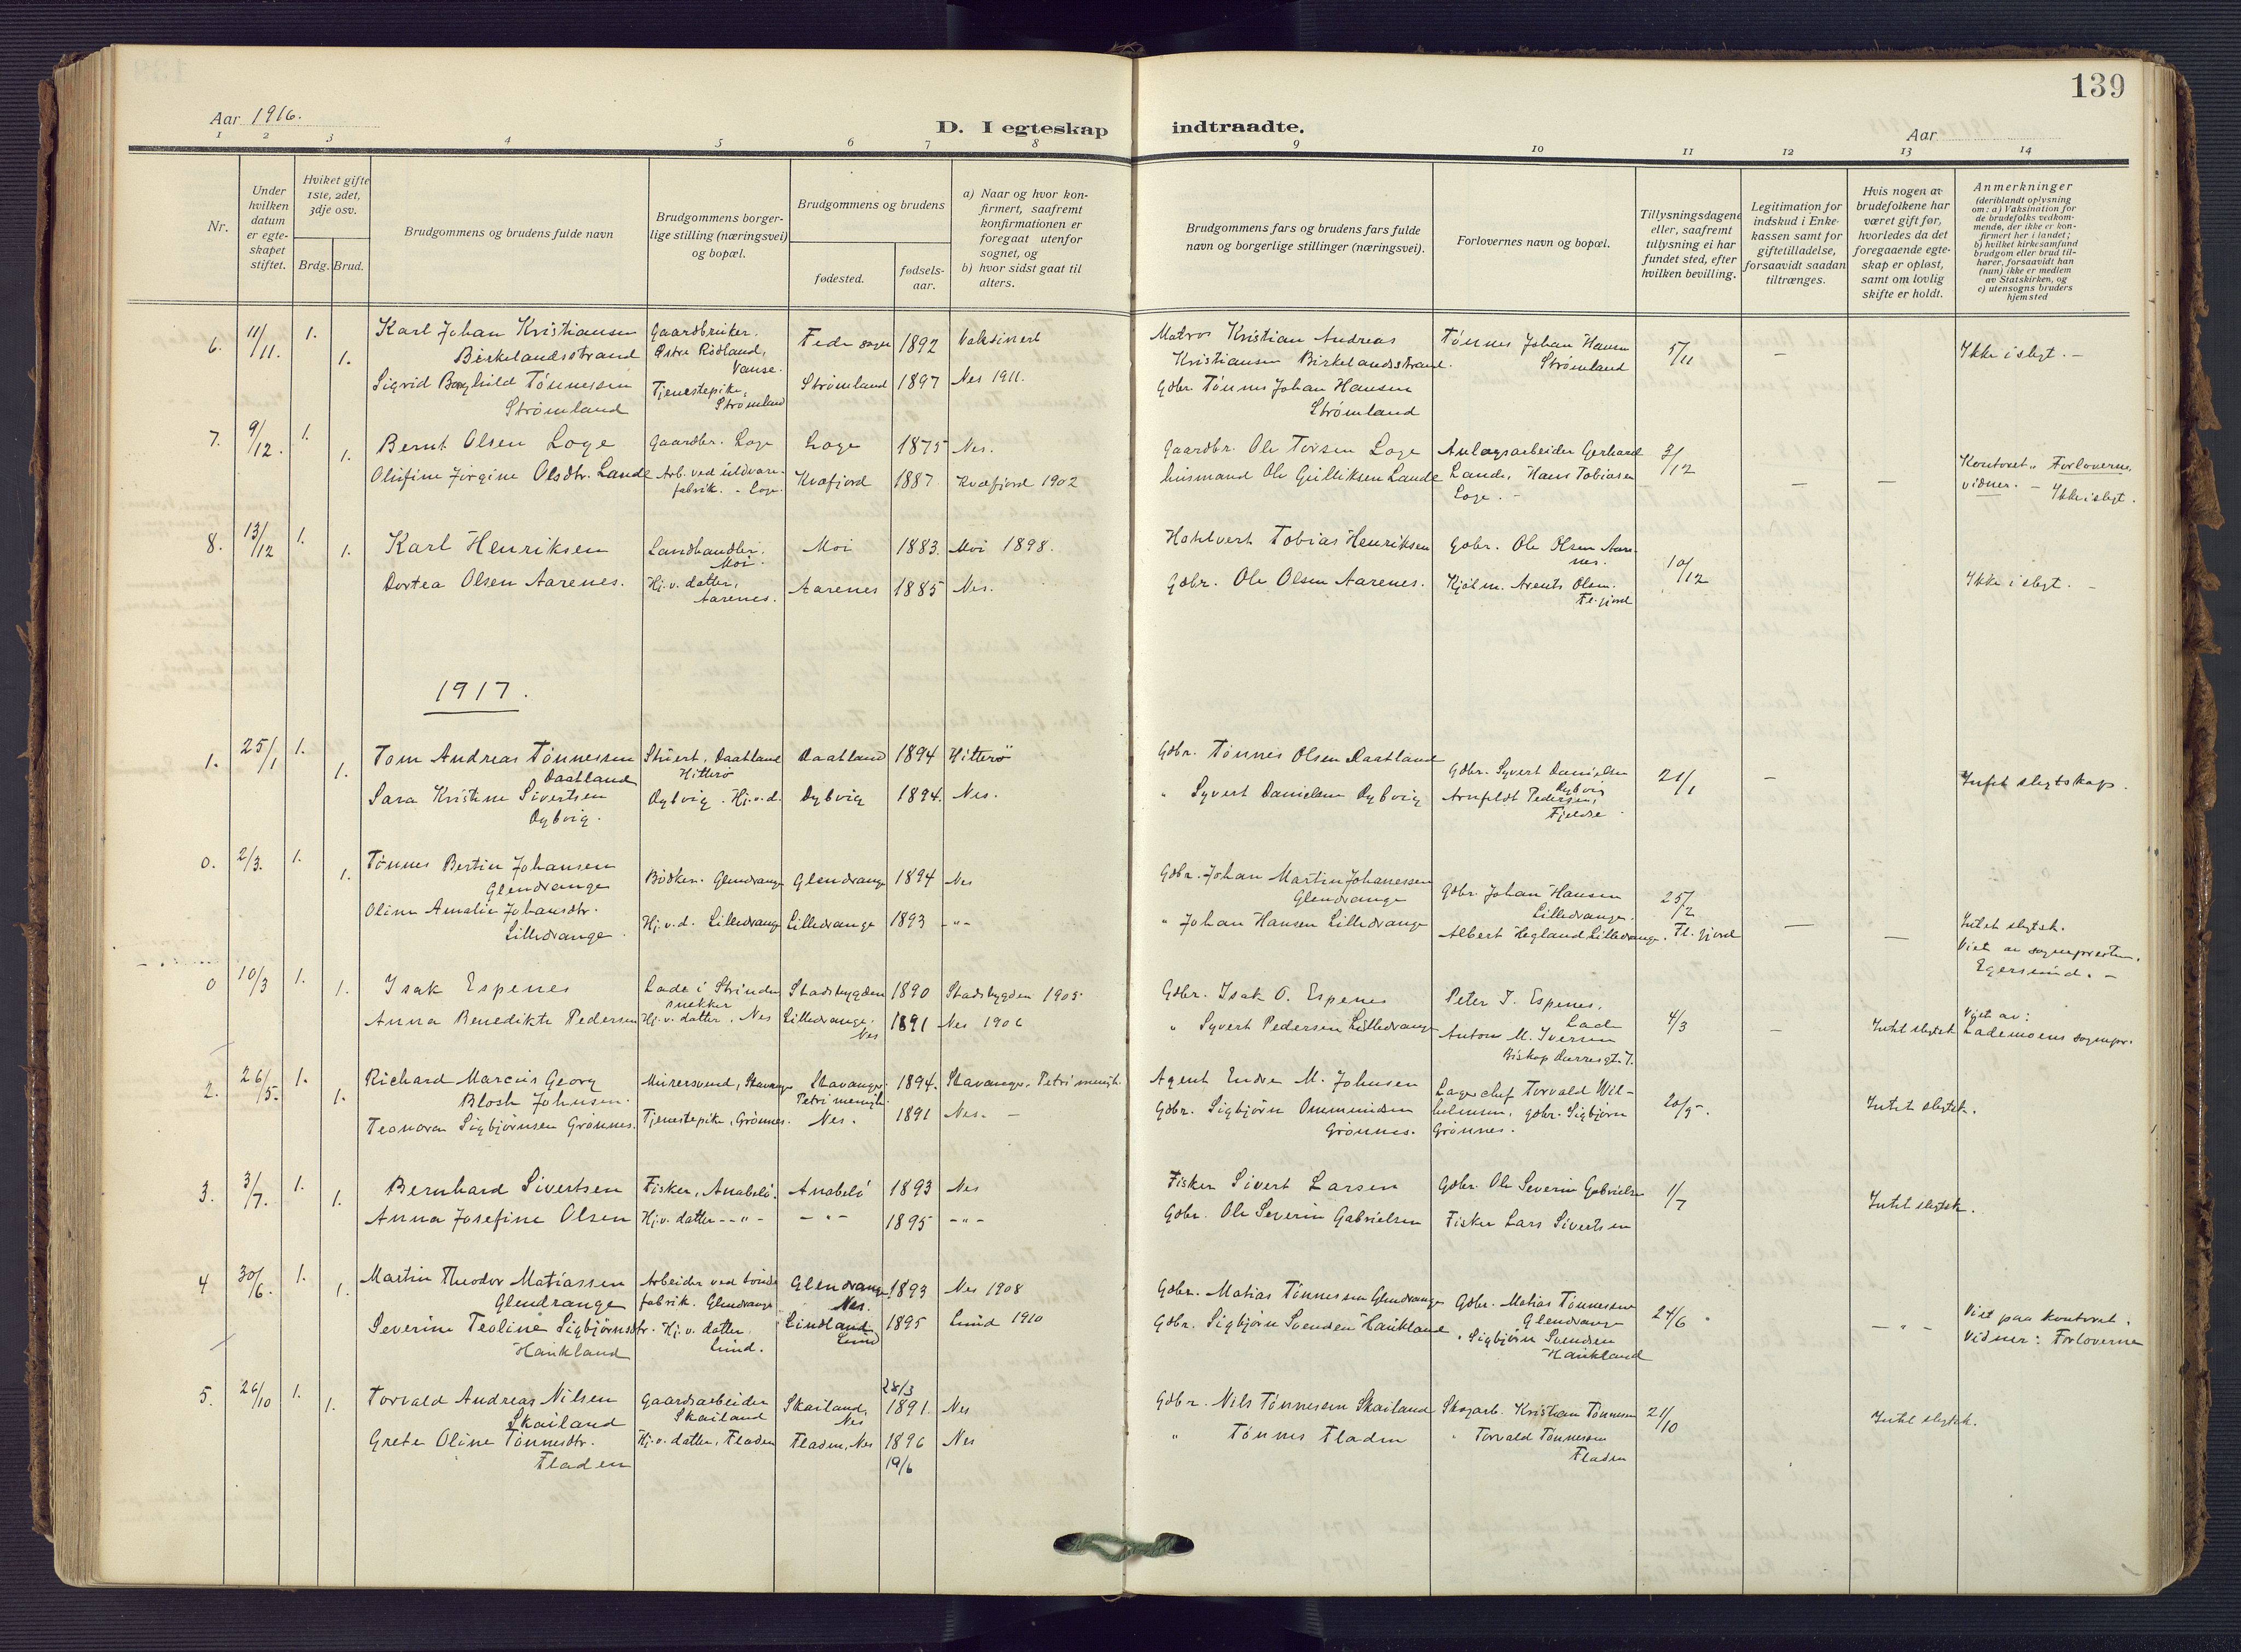 139
Aar 1916.
D. I egteskap indtraadte.
Aar
1 2 3 4 5 6 7 8 9 10 11 12 13 14
Nr.
Under hvilken datum er egteskapet stiftet.
Hviket gifte 1ste, 2det, 3dje osv.
Brdg. Brud.
Brudgommens og brudens fulde navn
Brudgommens borgerlige stilling (næringsvei) og bopæl.
Brudgommens og brudens
fødested.
fødselsaar.
a) Naar og hvor konfirmert, saafremt konfirmationen er foregaat utenfor sognet, og
b) hvor sidst gaat til alters.
Brudgommens fars og brudens fars fulde navn og borgerlige stillinger (næringsvei).
Forlovernes navn og bopæl.
Tillysningsdagene eller, saafremt tillysning ei har fundet sted, efter hvilken bevilling.
Legitimation for indskud i Enkekassen samt for giftetilladelse, forsaavidt saadan tiltrænges.
Hvis nogen av brudefolkene har været gift før, hvorledes da det foregaaende egteskap er opløst, samt om lovlig skifte er holdt.
Anmerkninger
(deriblandt oplysning om: a) Vaksination for de brudefolks vedkommende, der ikke er konfirmert her i landet; b) hvilket kirkesamfund brudgom eller brud tilhører, forsaavidt han (hun) ikke er medlem av Statskirken, og c) utensogns bruders hjemsted
6. 11/11. 1. Karl Johan Kristiansen Birkelandsstrand Gaardbruker. Østre Rødland, Vanse. Feda sogn 1892 Vaksinert Matros Kristian Andreas Kristiansen Birkelandsstrand. Tønnes Johan Hansen Strømland 5/11 – Ikke i slegt. –
1. Sigrid Borghild Tønnessen Strømland Tjenestepike, Strømland Strømland 1897 Nes 1911. Gdbr. Tønnes Johan Hansen Strømland
7. 9/12. 1. Bernt Olsen Loge Gaardbr. Loge Loge 1875 Nes. Gaardbr. Ole Torsen Loge Anlægsarbeider Gerhard 3/12
1. Olufine Jørgine Olsdtr. Lande Arb. ved uldvarefabrik. - Loge. Kvæfjord 1887. Kvæfjord 1902 husmand Ole Gulliksen Lande Lande, Hans Tobiasen Loge. – – – Kontoret. Forloverne vidner. – Ikke i slegt.
8. 13/12 1. Karl Henriksen Landhandler. Moi. Moi 1883. Moi 1898. Tobias Henriksen Gdbr. Ole Olsen Aarenes. 10/12
1. Dortea Olsen Aarenes. Hj.v. datter, Aarenes. Aarenes 1885 Nes. Gdbr. Ole Olsen Aarenes. Kjøbm. Arents Olsen. Fl.fjord Ikke i slegt. –
1917.
1. 25/1 1. Tom Andreas Tønnessen Daatland Stuert, Daatland Hitterö Daatland 1894 Hitterö Gdbr. Tønnes Olsen Daatland Gdbr. Syvert Danielsen Dybvig 21/1 – Intet slegtskap.
1. Sara Kristine Sivertsen Dybvig. Dybvig. Hj.v.d. Dybvig 1894. Nes. " Syvert Danielsen Dybvig Arnfeldt Pedersen, Fjeldse
0. 2/3. 1. Tønnes Bertin Johansen Glendrange Bødker. Glendrange Glendrange 1894 Nes Gdbr. Johan Martin Johannessen Glendrange Gdbr. Johan Hansen Lilledrange. 25/2
1. Oline Amalie Johansdtr. Lilledrange. Hj.v.d. Lilledrange Lilledrange 1893 -"- " Johan Hansen Lilledrange Albert Hegland Lilledrange. Fl.fjord – – Intet slegtsk. Viet av sogneprésten, Egersund. –
0 10/3 1. Isak Espenes Lade i Strinden snekker Stadsbygden 1890 Stadsbygden 1905 Gdbr. Isak O. Espenes Peter I. Espenes, Lade
1. Anna Benedikte Pedersen Hj.v. datter, Nes Lilledrange, Nes 1891 Nes 1906 " Syvert Pedersen Lilledrange Anton M. Iversen Biskop Darresgt. 7. 4/3 – Intet slegtsk Viet av: Lademoens sognepr.
2. 26/5. 1. Richard Marcus Georg Blosh Johnsen. Murersvend, Stavanger Stavanger. Petri menigh. 1894. Stavanger, Petri menigh. Agent Endre M. Johnsen Lagerchef Torvald Wilhelmsen, gdbr. Sigbjørn Grønnes. 20/5. Intet slegtsk.
1. Teonora Sigbjørnsen Grønnes. Tjenestepike, Grønnes. Nes. 1891 Nes. – Gdbr. Sigbjørn Ommundsen Grønnes.
3. 3/7. 1. Bernhard Sivertsen Fisker, Anabelö. Anabelö 1893 Nes Fisker Sivert Larsen Gdbr. Ole Severin Gabrielsen 1/7 Intet slegtsk.
1. Anna Josefine Olsen Hj.v. datter -"- -"- 1895 -"- Gdbr. Ole Severin Gabrielsen Fisker Lars Sivertsen
4 30/6. 1. Martin Theodor Matiassen Glendrange Arbeider ved töndefabrik. Glendrange Glendrange, Nes. 1893 Nes 1908 Gdbr. Matias Tønnessen Glendrange Gdbr. Matias Tønnessen Glendrange 24/6
1. Severine Teoline Sigbjørnsdtr. Haukland Hj.v. datter. Lund. Lindland Lund 1895 Lund 1910 Gdbr. Sigbjørn Svendsen Haukland " Sigbjørn Svendsen Haukland – " – Viet paa kontoret. Vidner: Forloverne
5. 26/10 1. Torvald Andreas Nilsen Skailand Gaardsarbeider Skailand Skailand, Nes 28/3 1891. Nes Gdbr. Nils Tønnessen Skailand Skogarb. Kristian Tønnessen 21/10 Intet slegtsk.
1. Grete Oline Tønnesdtr. Fladen Hj.v. datter, Fladen Fladen, Nes 1896 19/6 Nes " Tønnes Fladen " Torvald Tønnessen Fladen